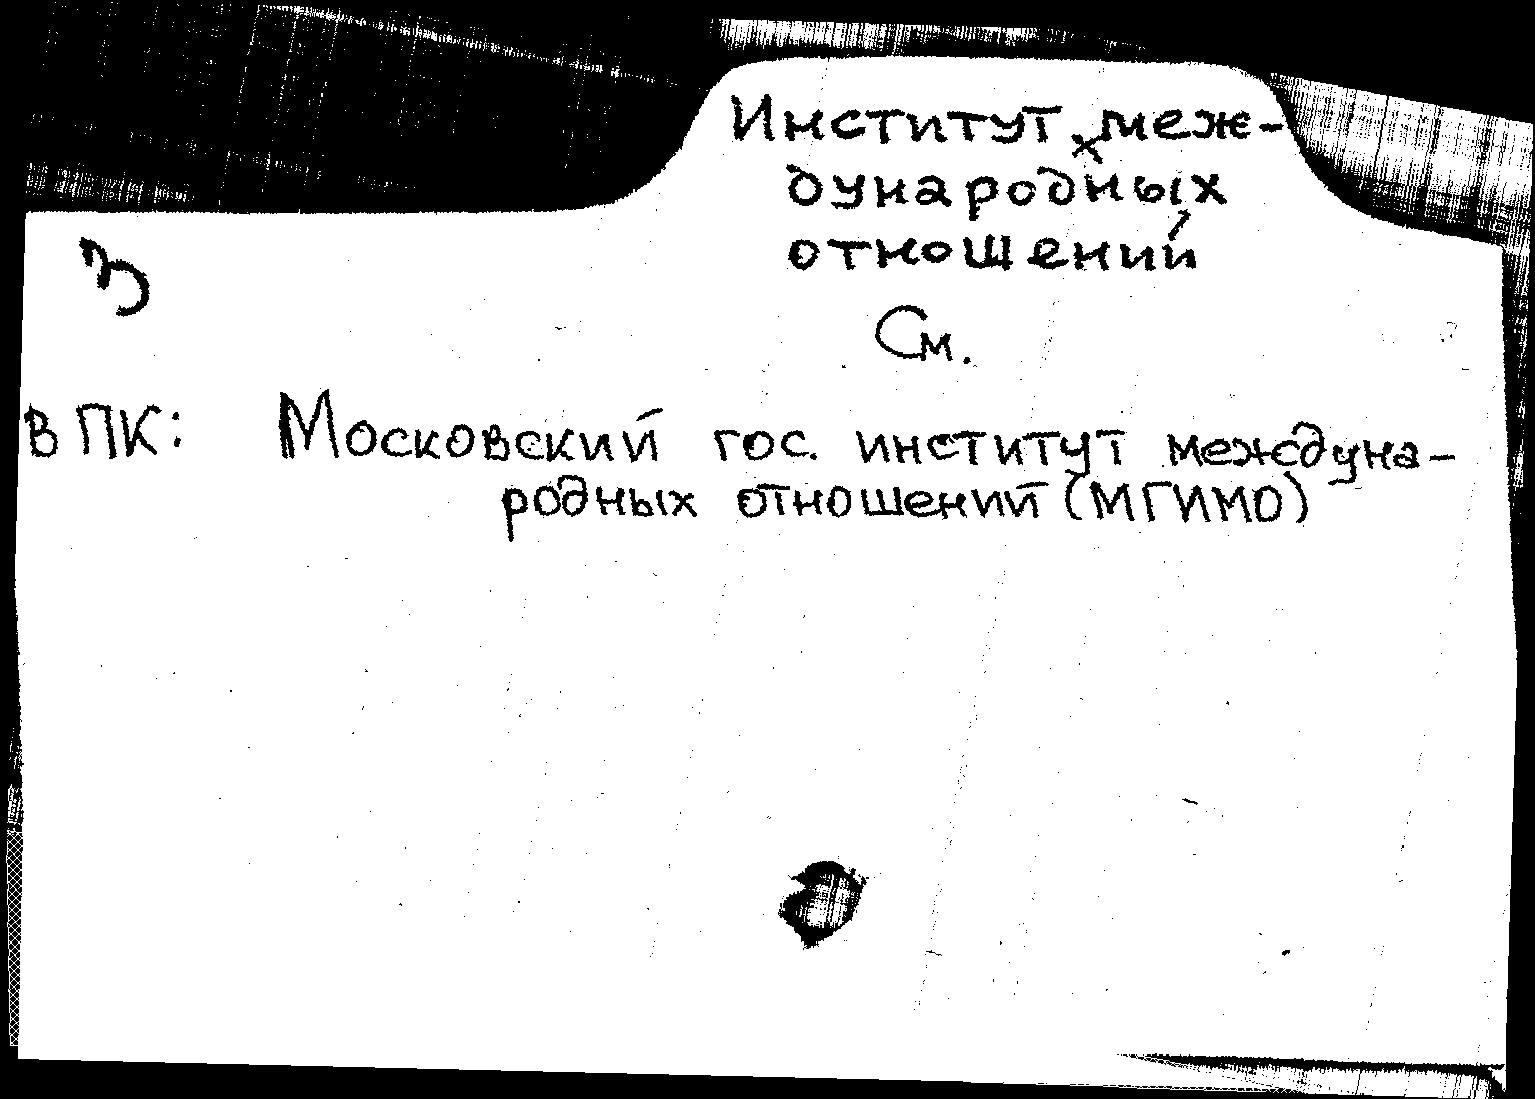 Институт меж-
дународных
отношений
См.
в ПК: Московский гос. институт междуна-
родных отношений (МГИМО)